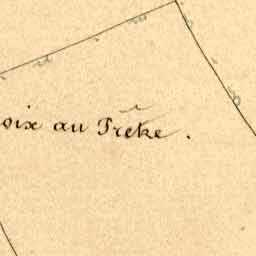 oix au Trêke.